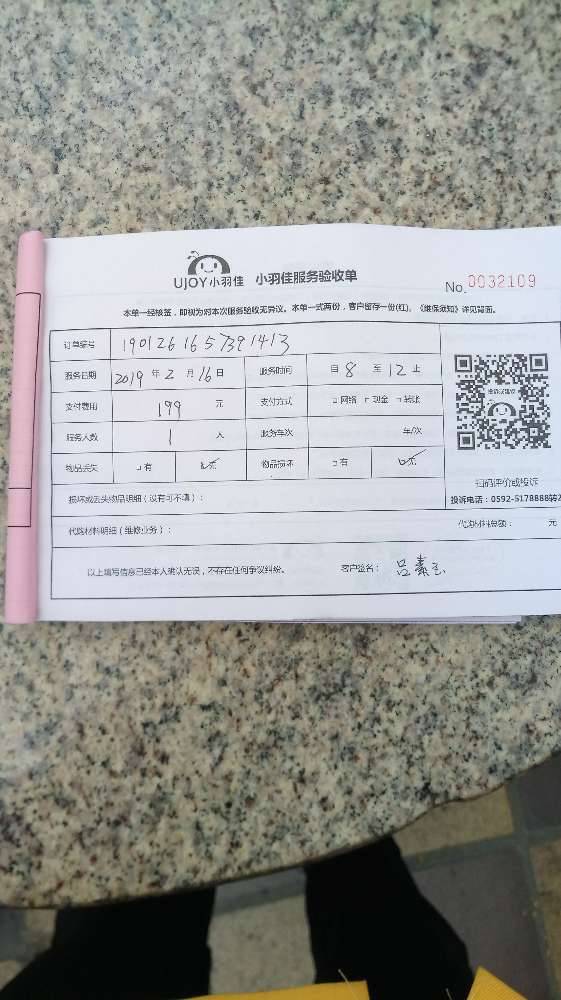 UJOY小羽佳 小羽佳服务验收单 No.0032109
本单一经核签，即视为对本次服务验收无异议。本单一式两份，客户留存一份(红)。《维保须知》详见背面。
订单编号 1901261657391413
服务日期 2019 年 2 月 16 日 服务时间 自 8 至 12 止
支付费用 199 元 支付方式 □网络 □现金 □转账
服务人数 1 人 服务车次 车/次
物品丢失 □有 □无 物品损坏 □有 □无
扫码评价或投诉
损坏或丢失物品明细（没有可不填）： 投诉电话：0592-5178888转2
代购材料明细（维修业务）： 代购材料总额： 元
以上填写信息已经本人确认无误，不存在任何争议纠纷。 客户签名： 吕素玉